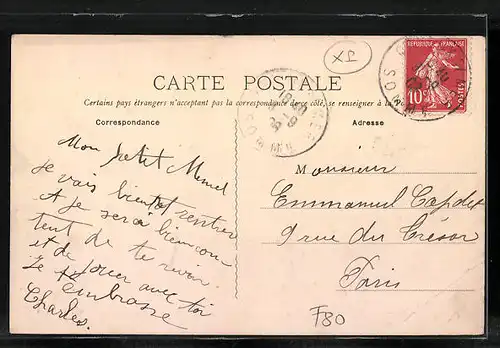 XP
RÉPUBLIQUE FRANÇAISE
10
POSTES
SOMME
CARTE POSTALE
Certains pays étrangers n'acceptant pas la correspondance de ce côté, se renseigner à la
Correspondance
Adresse
Mon petit Memel
je vais bientôt rentrer
et je serai bien con
tent de te revoir
et de jouer avec toi
Je t'embrasse
Charles.
Monsieur
Emmanuel Capdet
9 rue du Trésor
Paris
F80